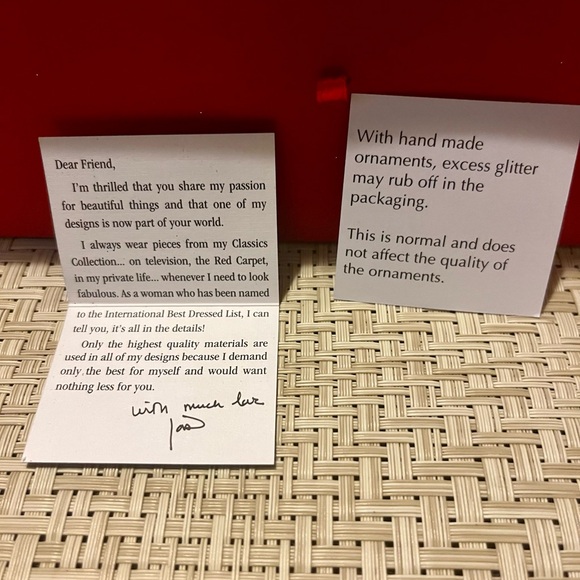 Dear Friend,
I'm thrilled that you share my passion
for beautiful things and that one of my
designs is now part of your world.
I always wear pieces from my Classics
Collection... on television, the Red Carpet,
in my private life... whenever I need to look
fabulous. As a woman who has been named
to the International Best Dressed List, I can
tell you, it's all in the details!
Only the highest quality materials are
used in all of my designs because I demand
only the best for myself and would want
nothing less for you.
with much love
Joan
With hand made
ornaments, excess glitter
may rub off in the
packaging.
This is normal and does
not affect the quality of
the ornaments.